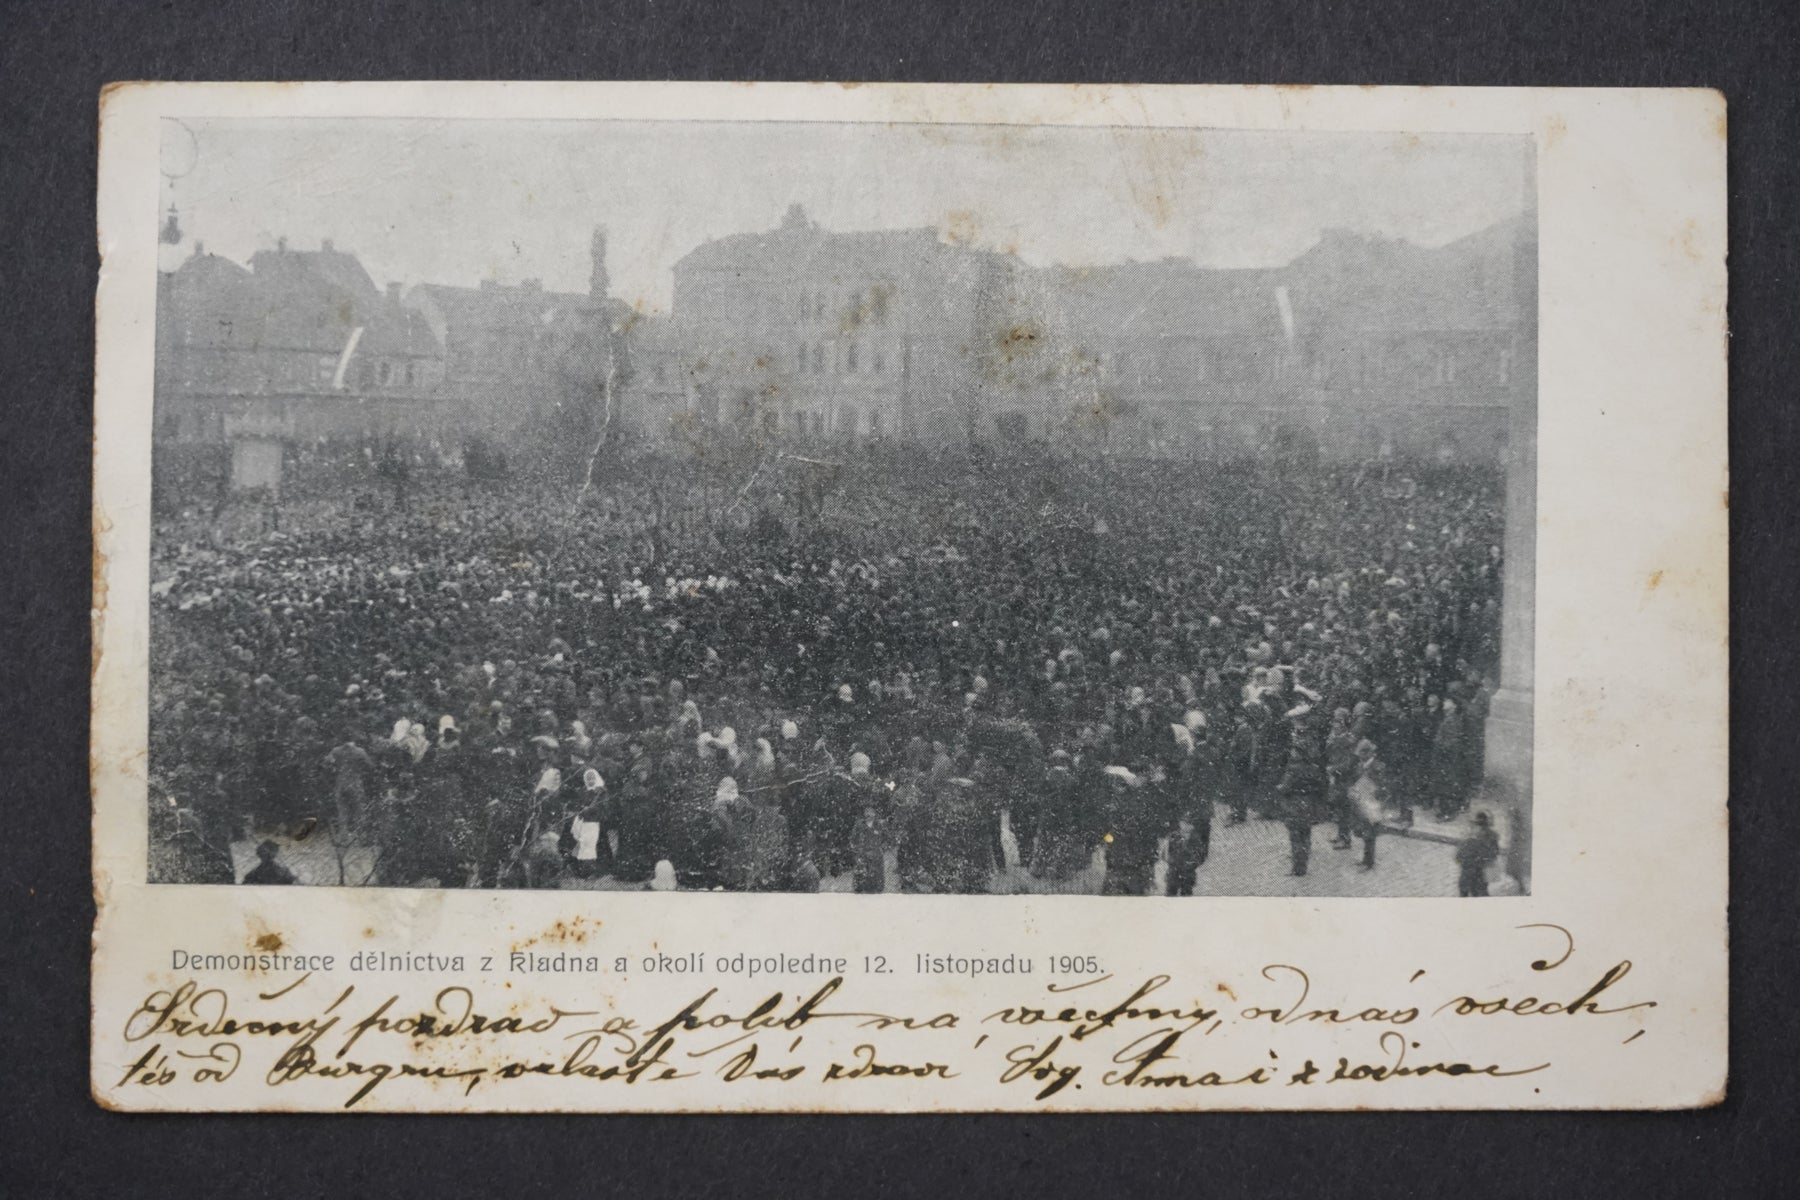 Demonstrace dělnictva z Kladna a okolí odpoledne 12. listopadu 1905.
Srdečný pozdrav a polib na všechny, od nás všech
též od Burgru, zvláště Vás zdraví Švg. Anna i z rodinou.